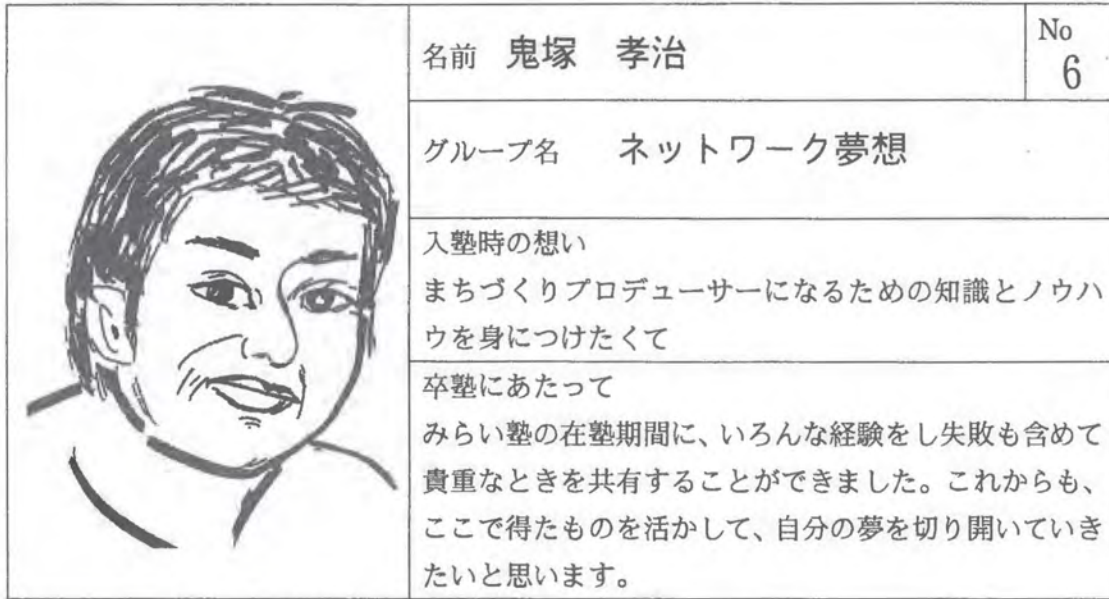 名前 鬼塚 孝治
No
6
グループ名 ネットワーク夢想
入塾時の想い
まちづくりプロデューサーになるための知識とノウハ
ウを身につけたくて
卒塾にあたって
みらい塾の在塾期間に、いろんな経験をし失敗も含めて
貴重なときを共有することができました。これからも、
ここで得たものを活かして、自分の夢を切り開いていき
たいと思います。